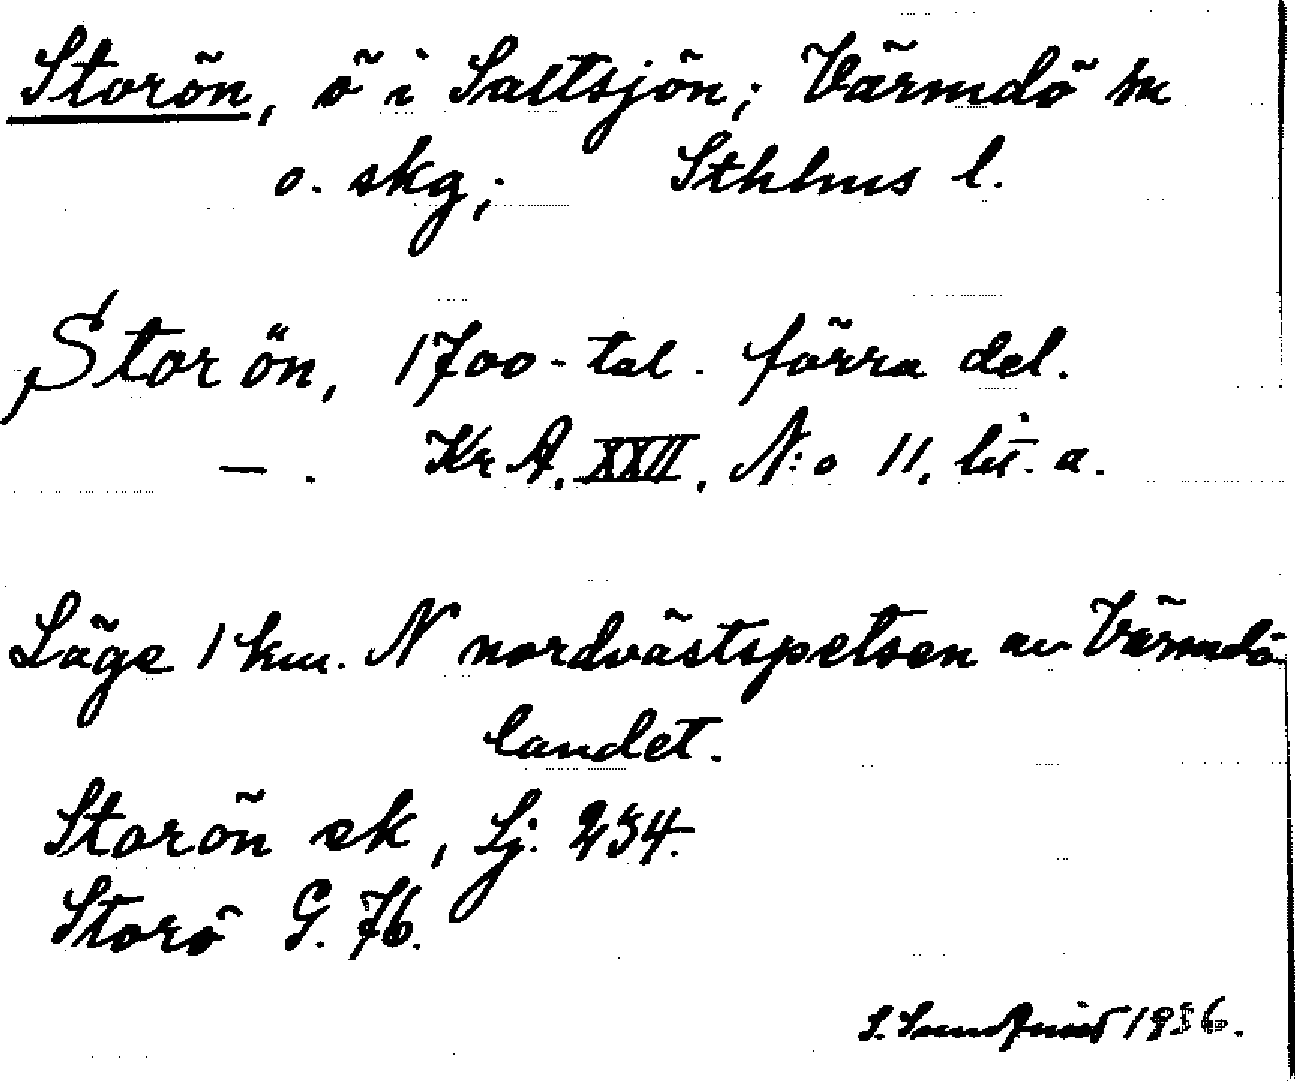 Storön, ö i Saltsjön; Värmdö sn
o. skg; Sthlms l.
Storön, 1700-tal. förra del.
—. Kr A. XXII. N:o 11. lit. a.
Läge 1 km. N nordvästspetsen av Värmdö
landet.
Storön ek, Lj. 234.
Storö G. 76.
S. Sundqvist 1936.